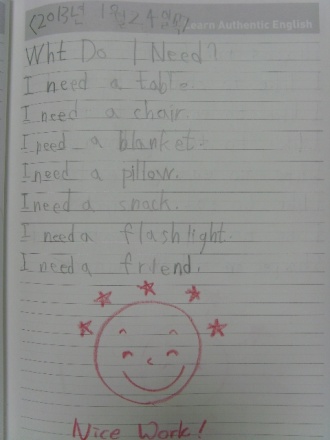 <2013년 1월 24일 목>
Learn Authentic English
Wht Do I Need?
I need a table.
I need a chair.
I need a blanket.
I need a pillow.
I need a snack.
I need a flashlight.
I need a friend.
Nice Work!